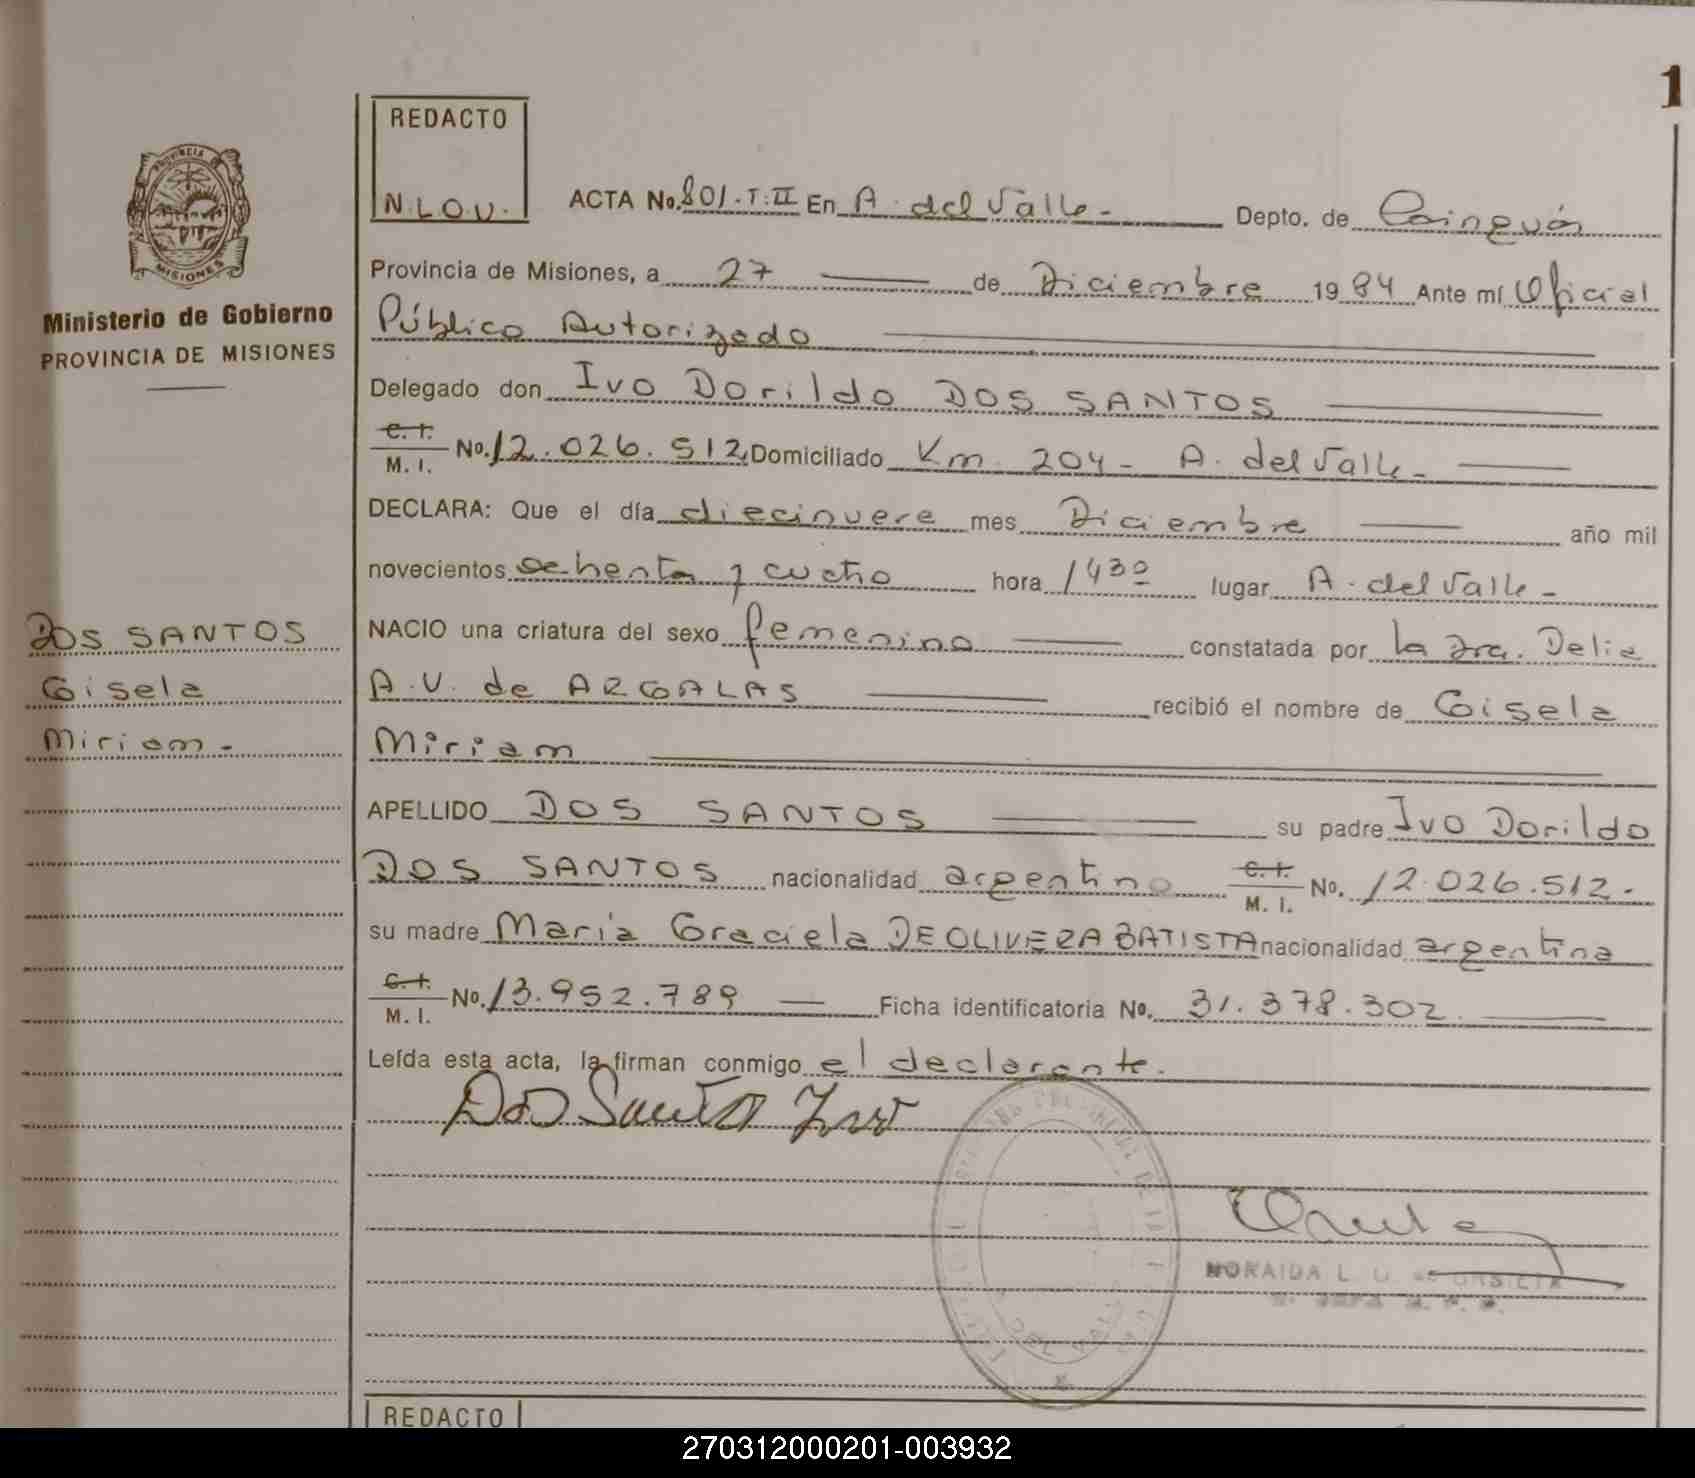 1
REDACTO
N.L.O.U.
PROVINCIA DE
MISIONES
Ministerio de Gobierno
PROVINCIA DE MISIONES
ACTA No. 801.T.II En A. del Valle - Depto. de Cainguás
Provincia de Misiones, a 27 de Diciembre 1984 Ante mí Oficial
Público Autorizado
Delegado don Ivo Dorildo DOS SANTOS
C. I. M. I. No. 12.026.512, Domiciliado Km. 204 - A. del Valle -
DECLARA: Que el día diecinueve mes Diciembre año mil
novecientos ochenta y cuatro hora 1430 lugar A. del Valle -
DOS SANTOS
Gisela
Miriam -
NACIO una criatura del sexo femenino constatada por la Dra. Delia
A.U. de ARGALAS recibió el nombre de Gisela
Miriam
APELLIDO DOS SANTOS su padre Ivo Dorildo
DOS SANTOS nacionalidad argentino C. I. M. I. No. 12.026.512.
su madre Maria Graciela DE OLIVERA BATISTA nacionalidad argentina
C. I. M. I. No. 13.952.789 Ficha identificatoria No. 31.378.302
Leída esta acta, la firman conmigo el declarante.
Dos Santos Ivo
NORAIDA L. U.
REDACTO
270312000201-003932